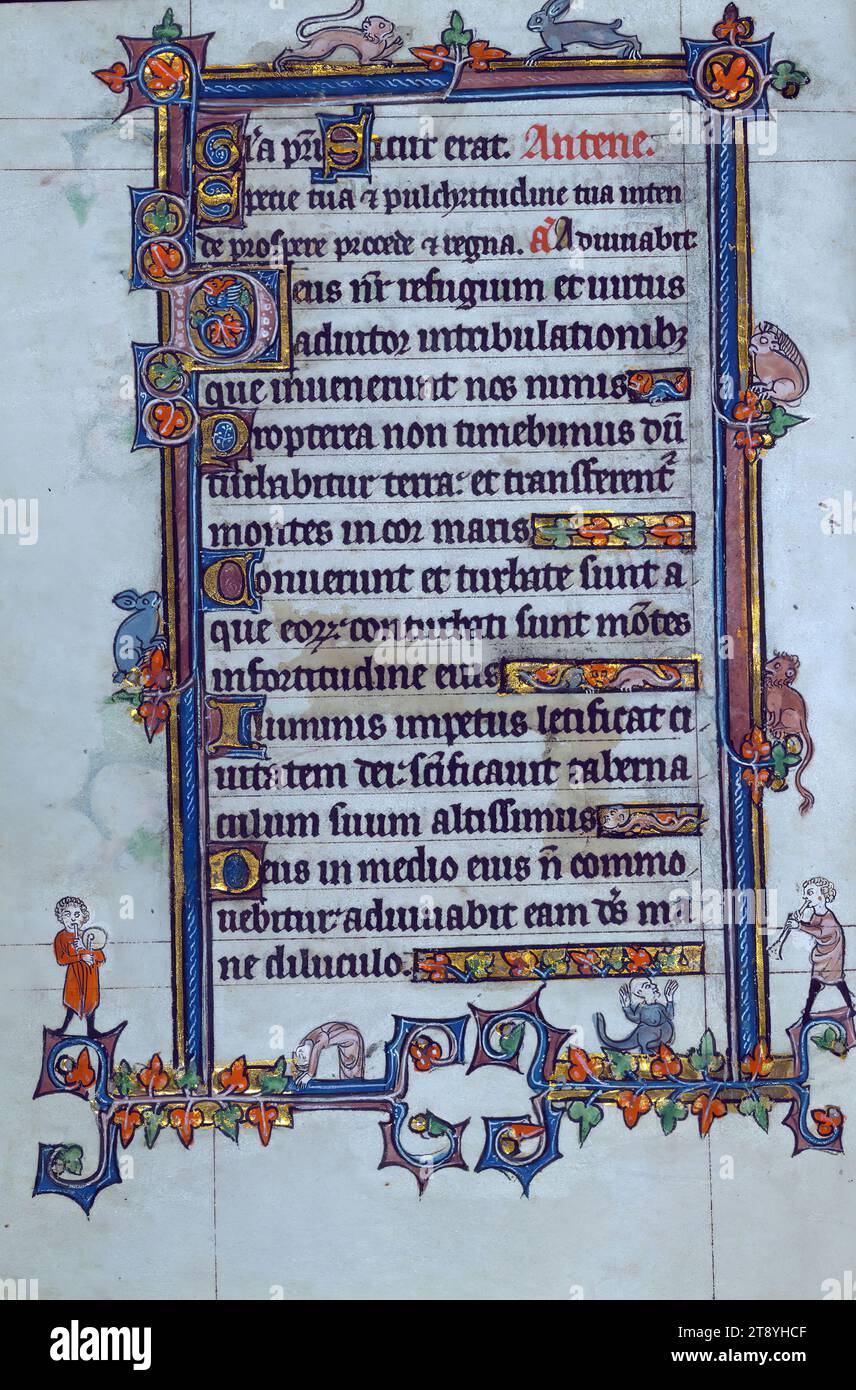 Gl'a pri Sicut erat. Antene.
Specie tua & pulchritudine tua inten
de prospere procede & regna. A Adiuuabit.
Deus nr refugium et uirtus
adiutor in tribulationibz
que inuenerunt nos nimis
Propterea non timebimus dū
turbabitur terra: et transferent'
montes in cor maris
Sonuerunt et turbate sunt a
que eorz: conturbati sunt mōtes
in fortitudine eius
Fluminis impetus letificat ci
uitatem dei: scīficauit taberna
culum suum altissimus
Deus in medio eius n̄ commo
uebitur: adiuuabit eam d̄s ma
ne diluculo.
alamy
Image ID: 2T8YHCF
www.alamy.com